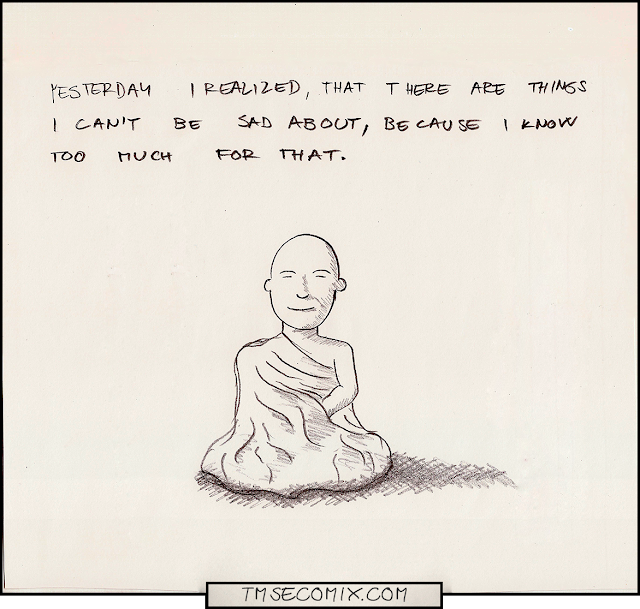 YESTERDAY I REALIZED, THAT THERE ARE THINGS
I CAN'T BE SAD ABOUT, BECAUSE I KNOW
TOO MUCH FOR THAT.
TMSECOMIX.COM